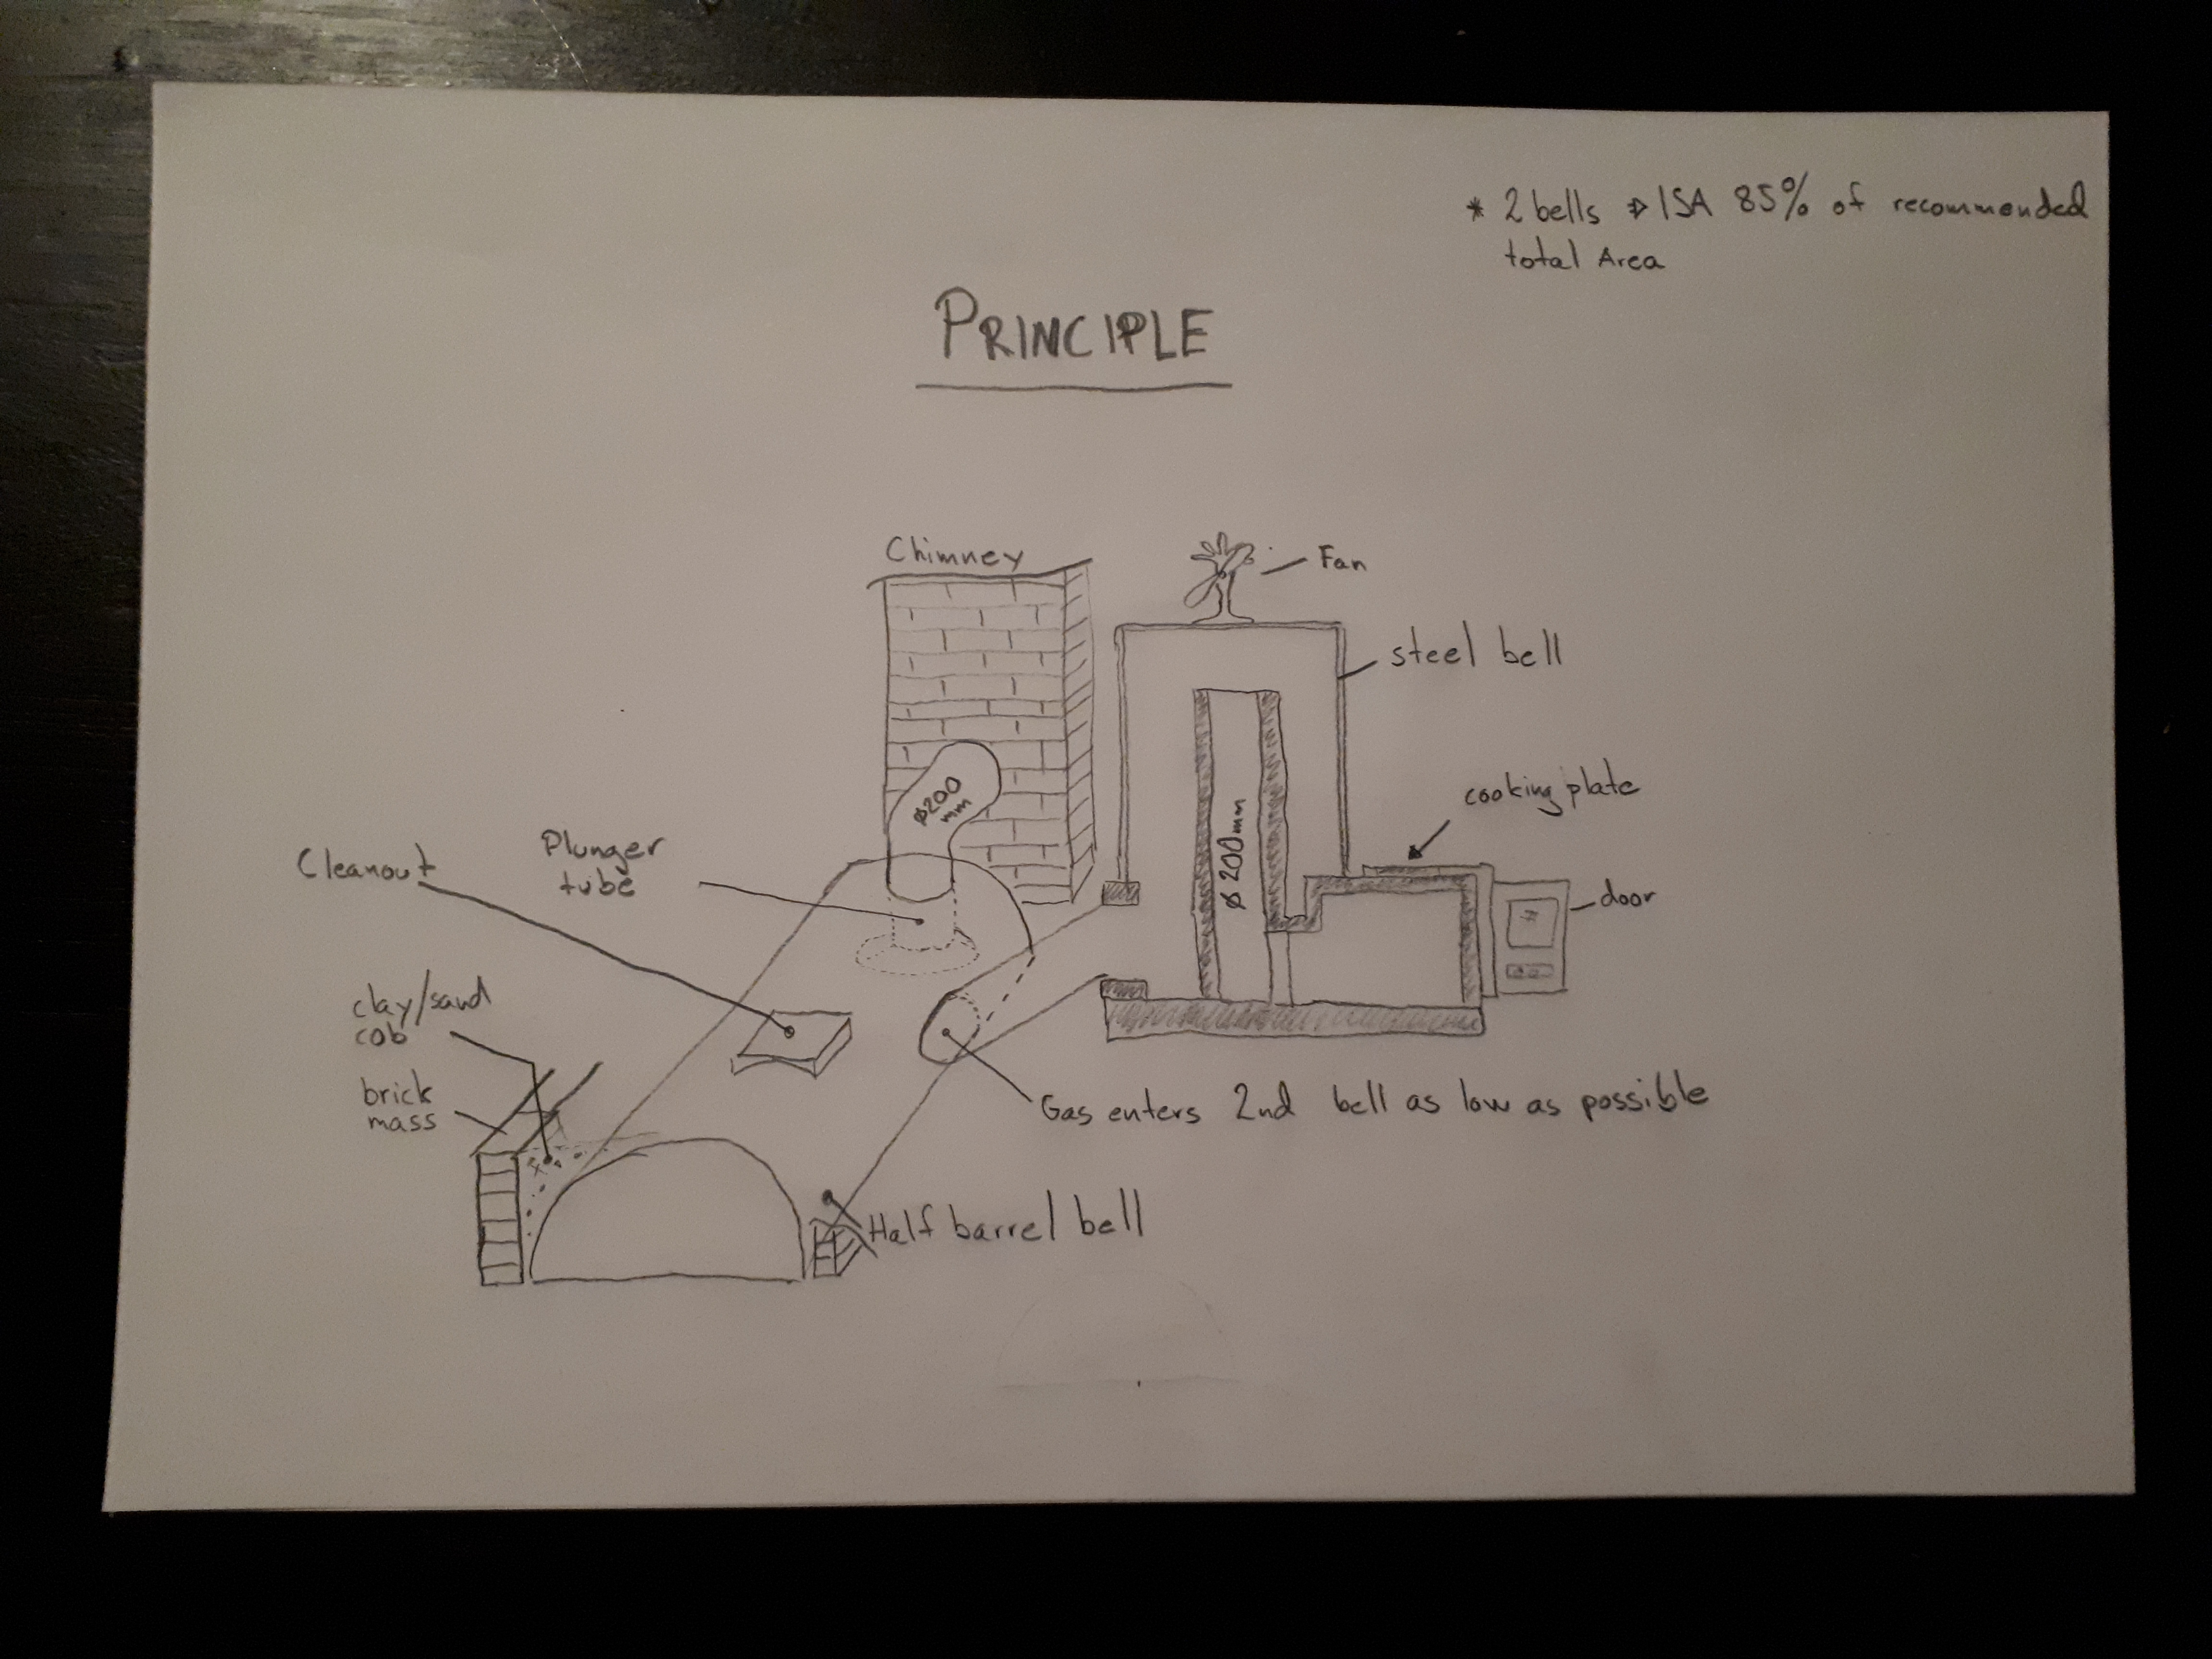 * 2 bells ⇒ ISA 85% of recommended
total Area
PRINCIPLE
Chimney
Fan
steel bell
cooking plate
door
ø200
mm
ø 200mm
Plunger
tube
Cleanout
clay/sand
cob
brick
mass
Gas enters 2nd bell as low as possible
Half barrel bell